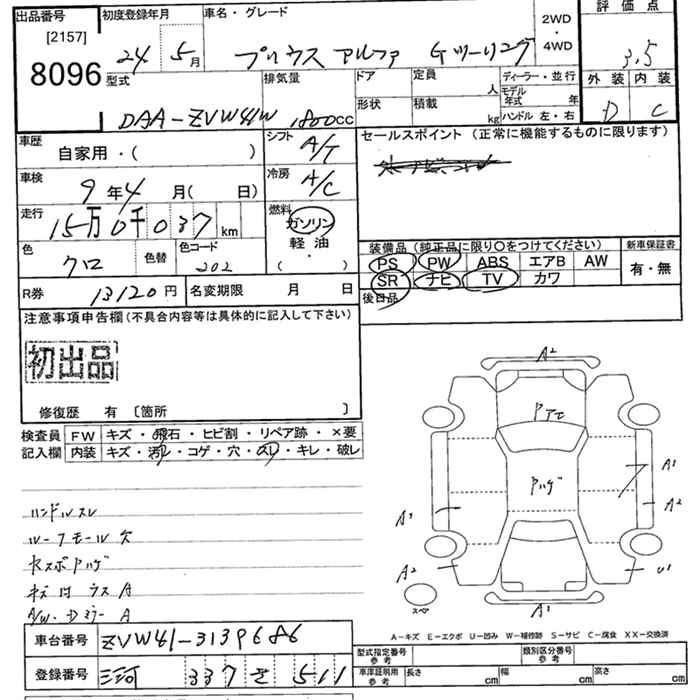 出品番号 初度登録年月 車名・グレード 2WD・4WD 評価点
[2157] 24 5月 プリウス アルファ Gツーリング 3.5
8096 型式 排気量 ドア 定員 人 ディーラー・並行 外装 内装
DAA-ZVW41W 1800cc 形状 積載 kg モデル年式 年 ハンドル 左・右 D C
車歴 自家用・( ) シフト A/T セールスポイント (正常に機能するものに限ります)
車検 9年4月( 日) 冷房 A/C
走行 15万0千037km 燃料 ガソリン 軽油・( )
色 クロ 色替 色コード 202
装備品(純正品に限り○をつけてください) 新車保証書
PS PW ABS エアB AW 有・無
SR ナビ TV カワ
R券 13120円 名変期限 月 日 後日品
注意事項申告欄(不具合内容等は具体的に記入して下さい)
初出品
修復歴 有 〔箇所 〕
検査員 FW キズ・飛石・ヒビ割・リペア跡・×要
記入欄 内装 キズ・汚れ・コゲ・穴・スレ・キレ・破レ
ハンドルスレ
ルーフモール欠
キズ付ウス A
A2
A1
A2
A2
U1
A1
スペア
A-キズ E-エクボ U-凹み W-補修跡 S-サビ C-腐食 XX-交換済
車台番号 ZVW41-3139686
登録番号 三河 337 そ 511
型式指定番号参考 類別区分番号参考
車庫証明用参考 長さ cm 幅 cm 高さ cm